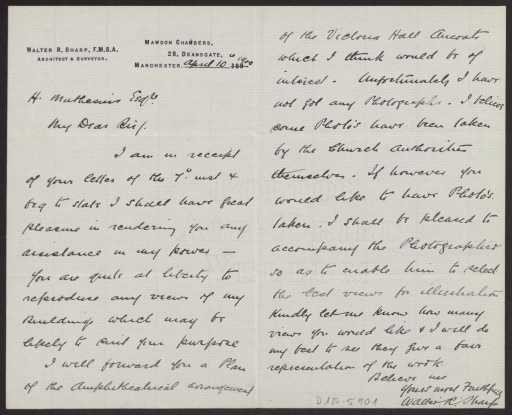 WALTER R. SHARP, F.M.S.A.
ARCHITECT & SURVEYOR.
MAWSON CHAMBERS,
28, DEANSGATE,
MANCHESTER, April 10th 1900
H. Muthesius Esqre
My Dear Sir/.
I am in receipt
of your letter of the 7th inst &
beg to state I shall have great
pleasure in rendering you any
assistance in my power —
You are quite at liberty to
reproduce any views of my
Buildings which may be
likely to suit your purpose
I will forward you a Plan
of the Amphitheatrical arrangement
of the Victoria Hall Ancoats
which I think would be of
interest. Unfortunately I have
not got any Photographs. I believe
some Photo's have been taken
by the Church Authorities
themselves. If however you
would like to have Photo's
taken. I shall be pleased to
accompany the Photographer
so as to enable him to select
the best views for illustration
Kindly let me know how many
views you would like & I will do
my best to see they give a fair
representation of the work
Believe me
Yours most Faithfully
Walter R. Sharp